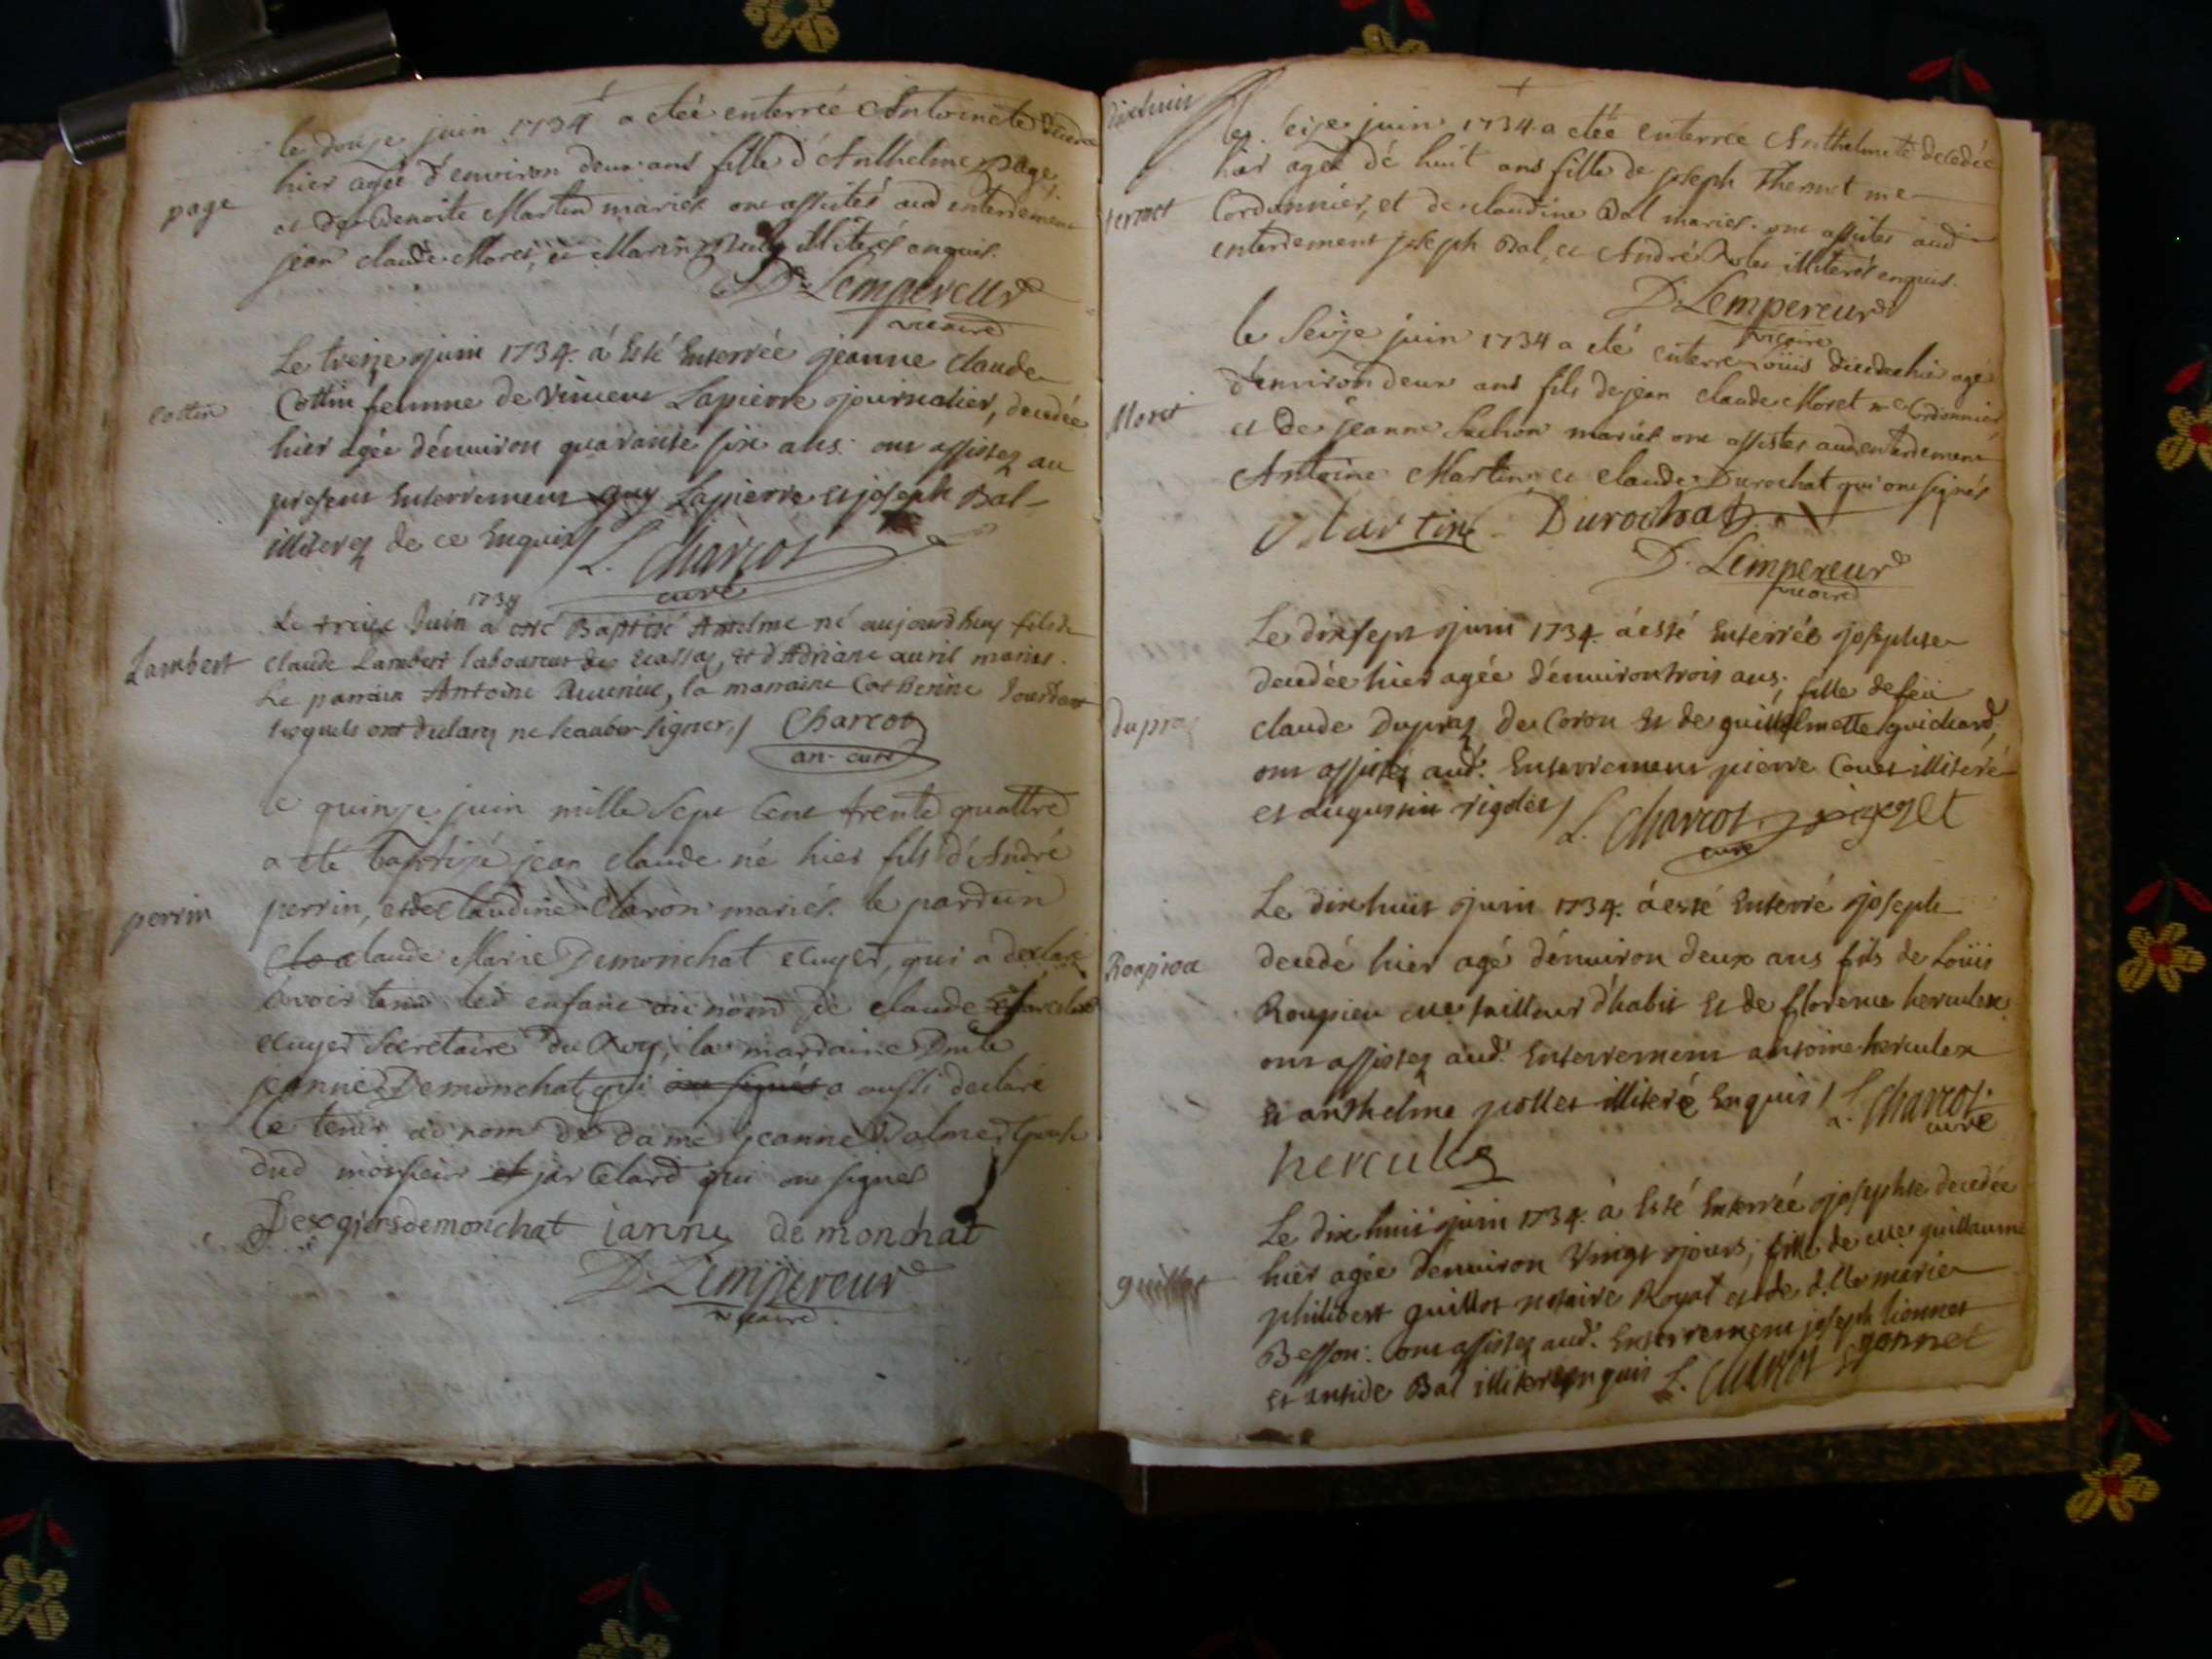 le douze juin 1734 a etée enterrée Antoinete decedée
hier agée d'environ deux ans fille d'Anthelme page
page
et de Benoite Martin mariés ont assistés aud enterrement
jean claude Moret, et Marin illiterés enquis.
D. Lempereur
vicaire
Le treize juin 1734. á Esté Enterrée jeanne claude
cottin
Cottin femme de vincent Lapierre journalier, decedée
hier agée d'enuiron quarante six ans. ont assistez au
present Enterrement guy Lapierre et joseph Bal
illiterez de ce Enquis /
L. Charcot
curé
1734
Le treize Juin a esté Baptisé Antelme né aujourdhuy fils de
Lambert
claude Lambert laboureur des et d'Adriane auril mariés.
Le parrain Antoine la marraine Catherine
lesquels ont declarez ne scauoir signer. / Charcot
an. curé
le quinze juin mille Sept Cent trente quattre
a eté baptizé jean claude né hier fils d'André
perrin
perrin, et de Claudine Claron mariés. le pardin
claude Marie Demonchat ecuyer, qui a declaré
avoir tenu led enfant au nom de claude
ecuyer Secretaire du Roy, la mardaine Dmlle
jeanne Demonchat qui ont signés a aussi declaré
le tenir au nom de dame jeanne Dalmed
dud monsieur et jarcelard qui ont signes
Desgiersdemonchat janne demonchat
D. Lempereur
vicaire
dixhuit
le seize juin 1734 a etée enterrée Anthelmete decedée
hier agée de huit ans fille de joseph Thermet me
termet
Cordonnier, et de claudine Bal mariés. ont assistes aud
enterrement joseph Bal, et André illiterés enquis.
D. Lempereur
vicaire
le seize juin 1734 a eté enterré Loüis decedé hier agé
d'environ deux ans fils de jean claude Moret me Cordonnier
Moret
et de jeanne Suchon mariés ont assistes aud enterdement
Antoine Martin et claude Durochat qui ont signés
Martin Durochat
D. Lempereur
vicaire
Le dixsept juin 1734. á esté Enterrée josephte
decedée hier agée d'enuiron trois ans, fille de feü
dupraz
claude Dupraz de Coron Et de guillelmette guichard,
ont assistez aud. Enterrement pierre Couet illiteré
et augustin rigolet /
L. Charcot rigolet
curé
Le dixhuit juin 1734. á esté Enterré joseph
decedé hier agé d'enuiron deux ans fils de Loüis
Roupieu me tailleur d'habit Et de florence herculex
ont assistez aud. Enterrement antoine herculex
Et anthelme pollet illiteré Enquis / L. Charcot
curé
hercules
Le dix huit juin 1734. á Esté Enterrée josephte decedée
hier agée d'enuiron Vingt jours, fille de me guillaume
guillot
philibert guillot notaire Royal et de d.lle marie
Besson: ont assistez aud. Enterrement joseph
Et antide Bal illiterez enquis L. Charcot